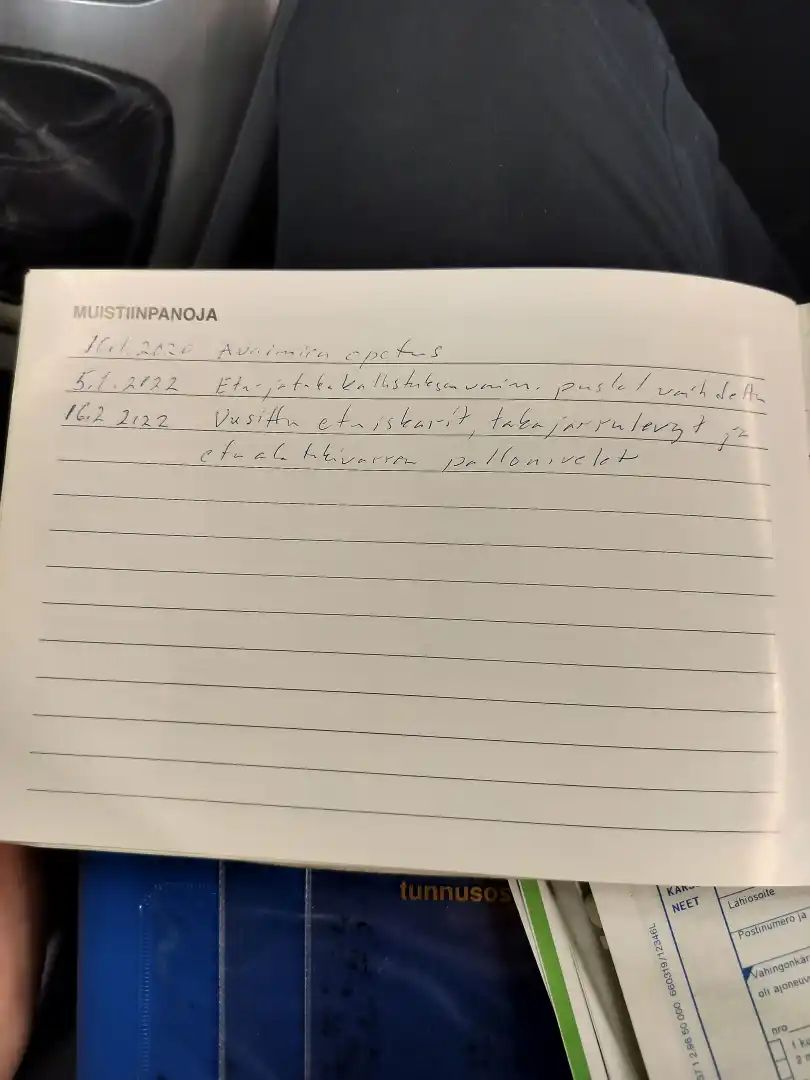 MUISTIINPANOJA
16.1.2020 Avaimien opetus
5.1.2022 Eta- ja takakallistuksenvaim. puslat vaihdettu
16.2 2022 Uusittu etuiskarit, takajarrulevyt ja
etu ala tukivarren pallonivelet
tunnusos
NEET
Lähiosoite
Postinumero ja
Vahingonkär
oli ajoneuv
nro
371 2.96 50 000 660319/12346L